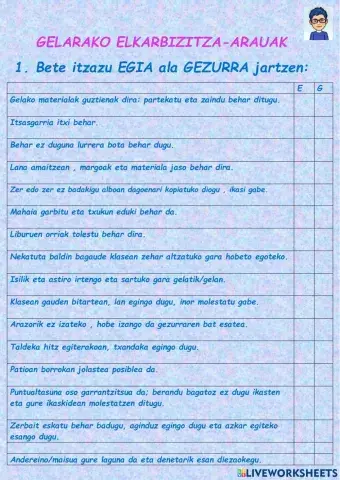 GELARAKO ELKARBIZITZA-ARAUAK
1. Bete itzazu EGIA ala GEZURRA jartzen:
E G
Gelako materialak guztienak dira: partekatu eta zaindu behar ditugu.
Itsasgarria itxi behar.
Behar ez duguna lurrera bota behar dugu.
Lana amaitzean , margoak eta materiala jaso behar dira.
Zer edo zer ez badakigu alboan dagoenari kopiatuko diogu , ikasi gabe.
Mahaia garbitu eta txukun eduki behar da.
Liburuen orriak tolestu behar dira.
Nekatuta baldin bagaude klasean zehar altzatuko gara hobeto egoteko.
Isilik eta astiro irtengo eta sartuko gara gelatik/gelan.
Klasean gauden bitartean, lan egingo dugu, inor molestatu gabe.
Arazorik ez izateko , hobe izango da gezurraren bat esatea.
Taldeka hitz egiterakoan, txandaka egingo dugu.
Patioan borrokan jolastea posiblea da.
Puntualtasuna oso garrantzitsua da; berandu bagatoz ez dugu ikasten
eta gure ikaskidean molestatzen ditugu.
Zerbait eskatu behar badugu, aginduz egingo dugu eta azkar egiteko
esango dugu.
Andereino/maisua gure laguna da eta denetarik esan diezaokegu.
LIVEWORKSHEETS